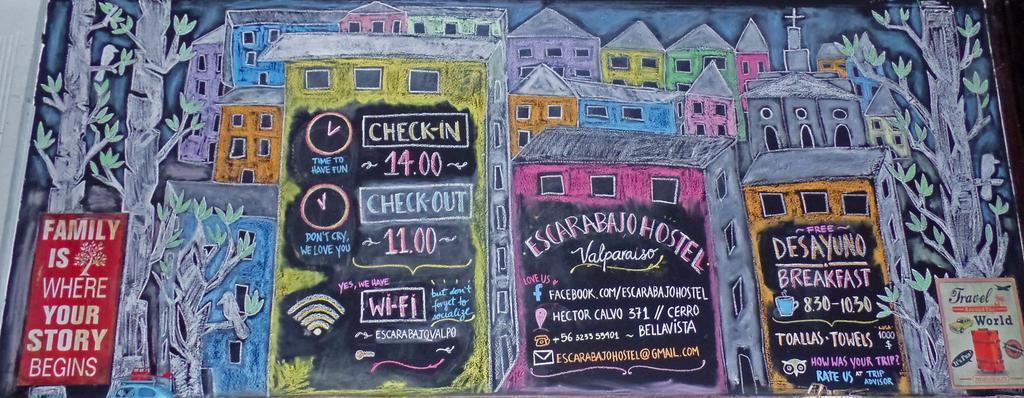 FAMILY
IS
WHERE
YOUR
STORY
BEGINS
CHECK-IN
TIME TO
HAVE FUN
~ 14.00 ~
CHECK-OUT
DON'T CRY,
WE LOVE YOU
~ 11.00 ~
YES, WE HAVE
WI-FI
but don't
forget to
socialize
~ ESCARABAJOVALPO
ESCARABAJO HOSTEL
Valparaíso
LOVE US
FACEBOOK.COM/ESCARABAJOHOSTEL
HECTOR CALVO 371 // CERRO
~ BELLAVISTA
+56 3233 55401
ESCARABAJOHOSTEL@GMAIL.COM
~ FREE ~
DESAYUNO
BREAKFAST
8.30 - 10.30
TOALLAS - TOWELS
1000
HOW WAS YOUR TRIP?
RATE US AT TRIP
ADVISOR
Travel
World